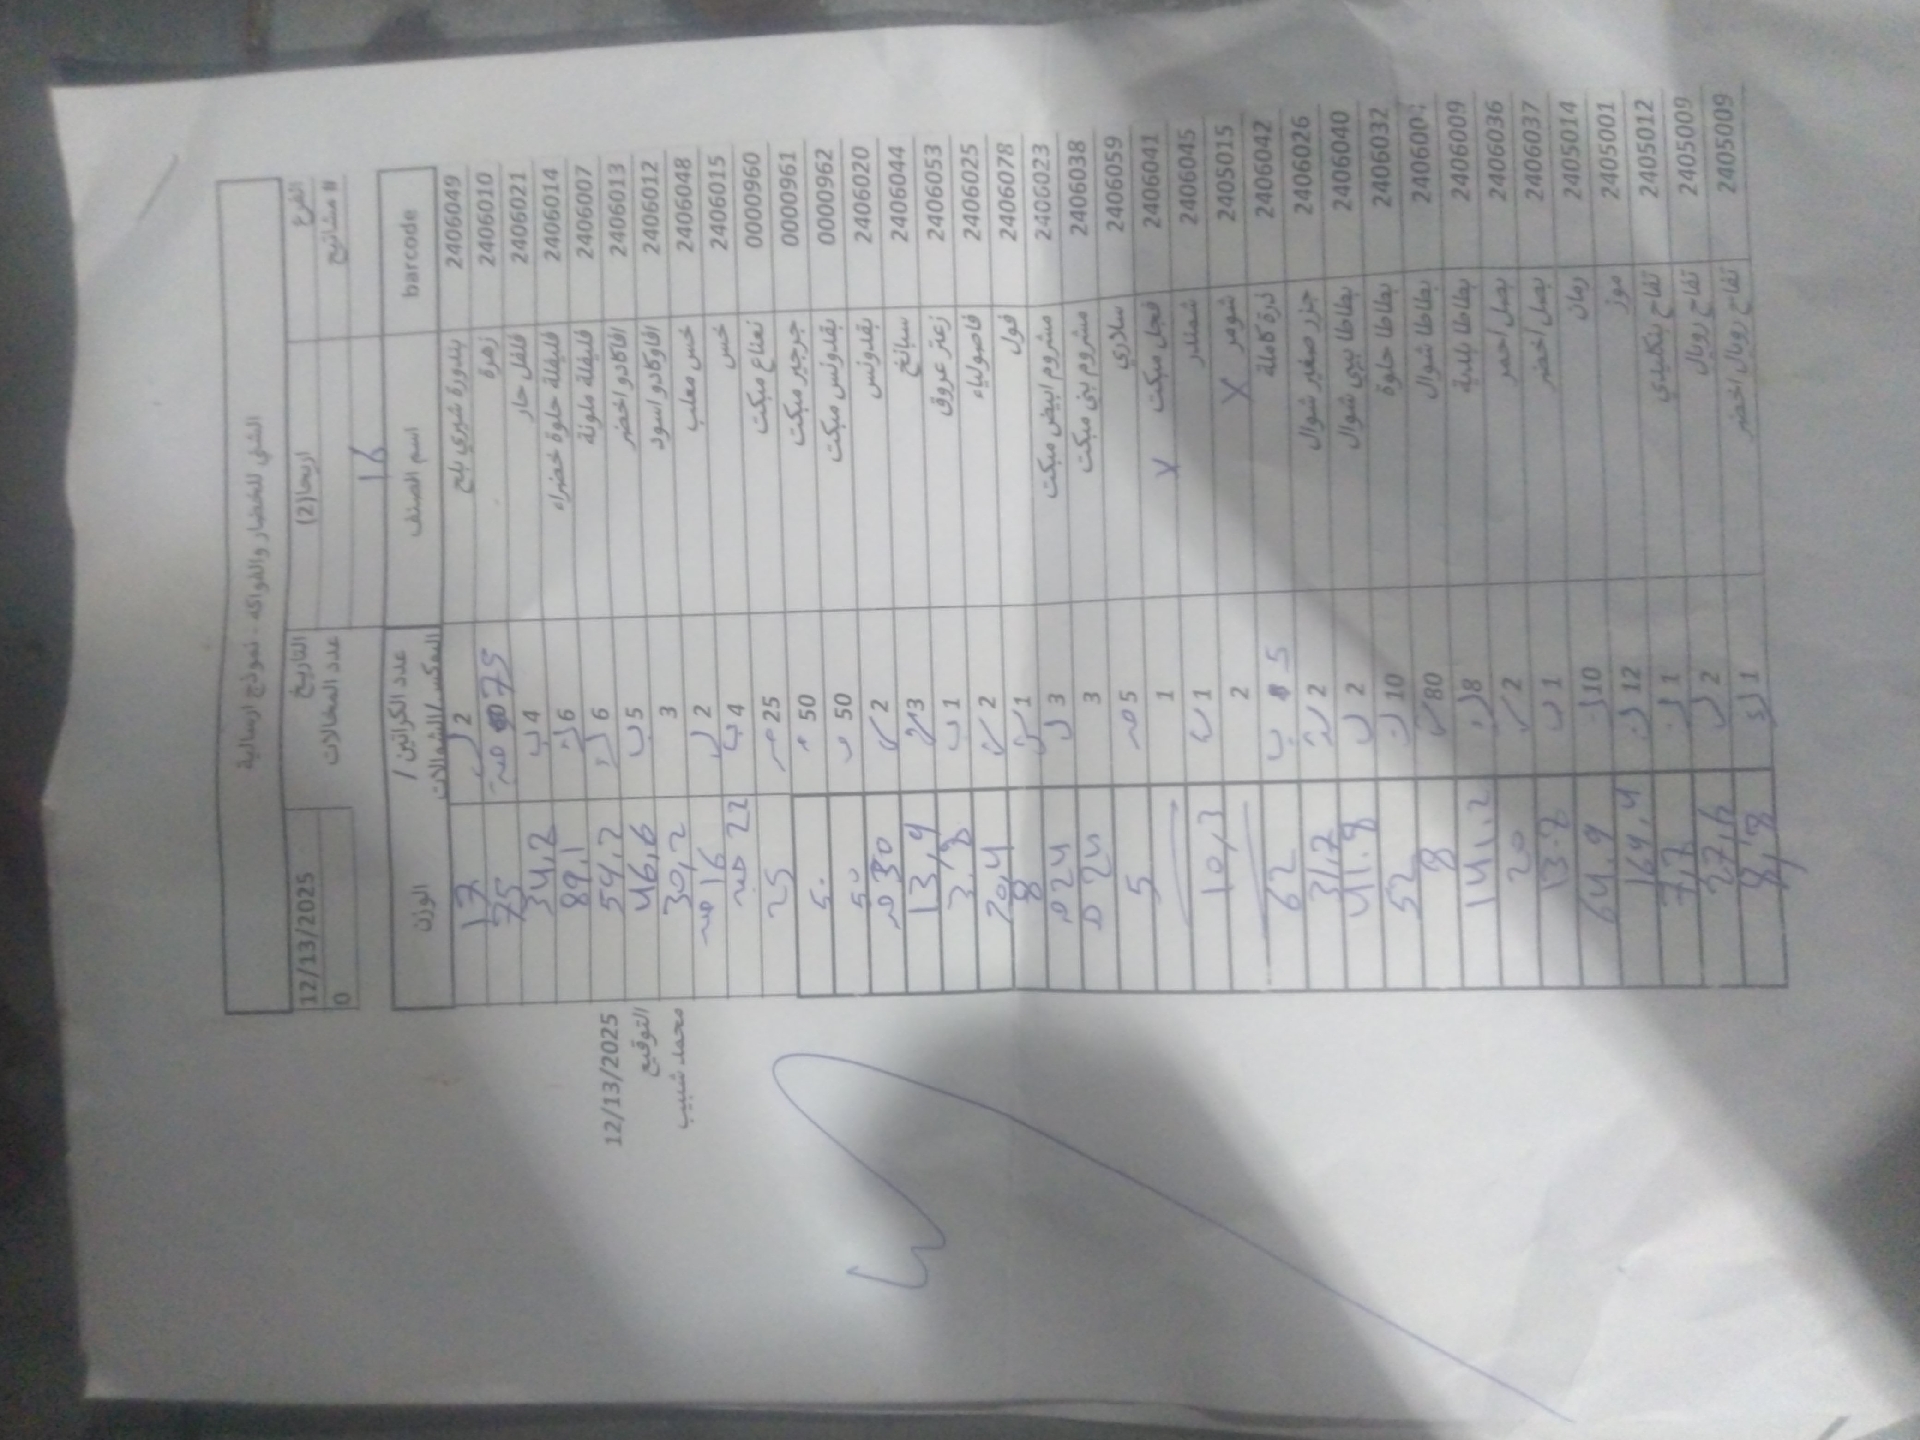 الشني للخضار والفواكه - نموذج ارسالية
الفرع اريحا(2) التاريخ 12/13/2025
# مشاتيح 16 عدد المحالات 0
barcode اسم الصنف عدد الكراتين / البكس/الشمالات الوزن
2406049 بندورة شيري بلح 2 17
2406010 زهرة 75 75
2406021 فلفل حار 4 34,2
2406014 فليفلة حلوة خضراء 6 89,1
2406007 فليفلة ملونة 6 54,2
2406013 افاكادو اخضر 5 46,6
2406012 افاوكادو اسود 3 30,2
2406048 خس معلب 2 16
2406015 خس 4 22
0000960 نعناع مبكت 25 25
0000961 جرجير مبكت 50 50
0000962 بقدونس مبكت 50 50
2406020 بقدونس 2 30
2406044 سبانخ 3 13,9
2406053 زعتر عروق 1 3.8
2406025 فاصولياء 2 20,4
2406078 فول 1 8
2406023 مشروم ابيض مبكت 3 24
2406038 مشروم بني مبكت 3 24
2406059 سلاري 5 5
2406041 فجل مبكت X 1
2406045 شمندر 1 10,3
2405015 شومر X 2
2406042 ذرة كاملة 5 62
2406026 جزر صغير شوال 2 31,7
2406040 بطاطا بيبي شوال 2 41.8
2406032 بطاطا حلوة 10 52
بطاطا شوال 80 8
2406009 بطاطا بلدية 8 141,2
2406036 بصل احمر 2 20
2406037 بصل اخضر 1 13.8
2405014 رمان 10 64.9
2405001 موز 12 169,4
2405012 تفاح بنكليدي 1 7,7
2405009 تفاح رويال 2 27,6
2405009 تفاح رويال اخضر 1 8,8
12/13/2025
التوقيع
محمد شبيب